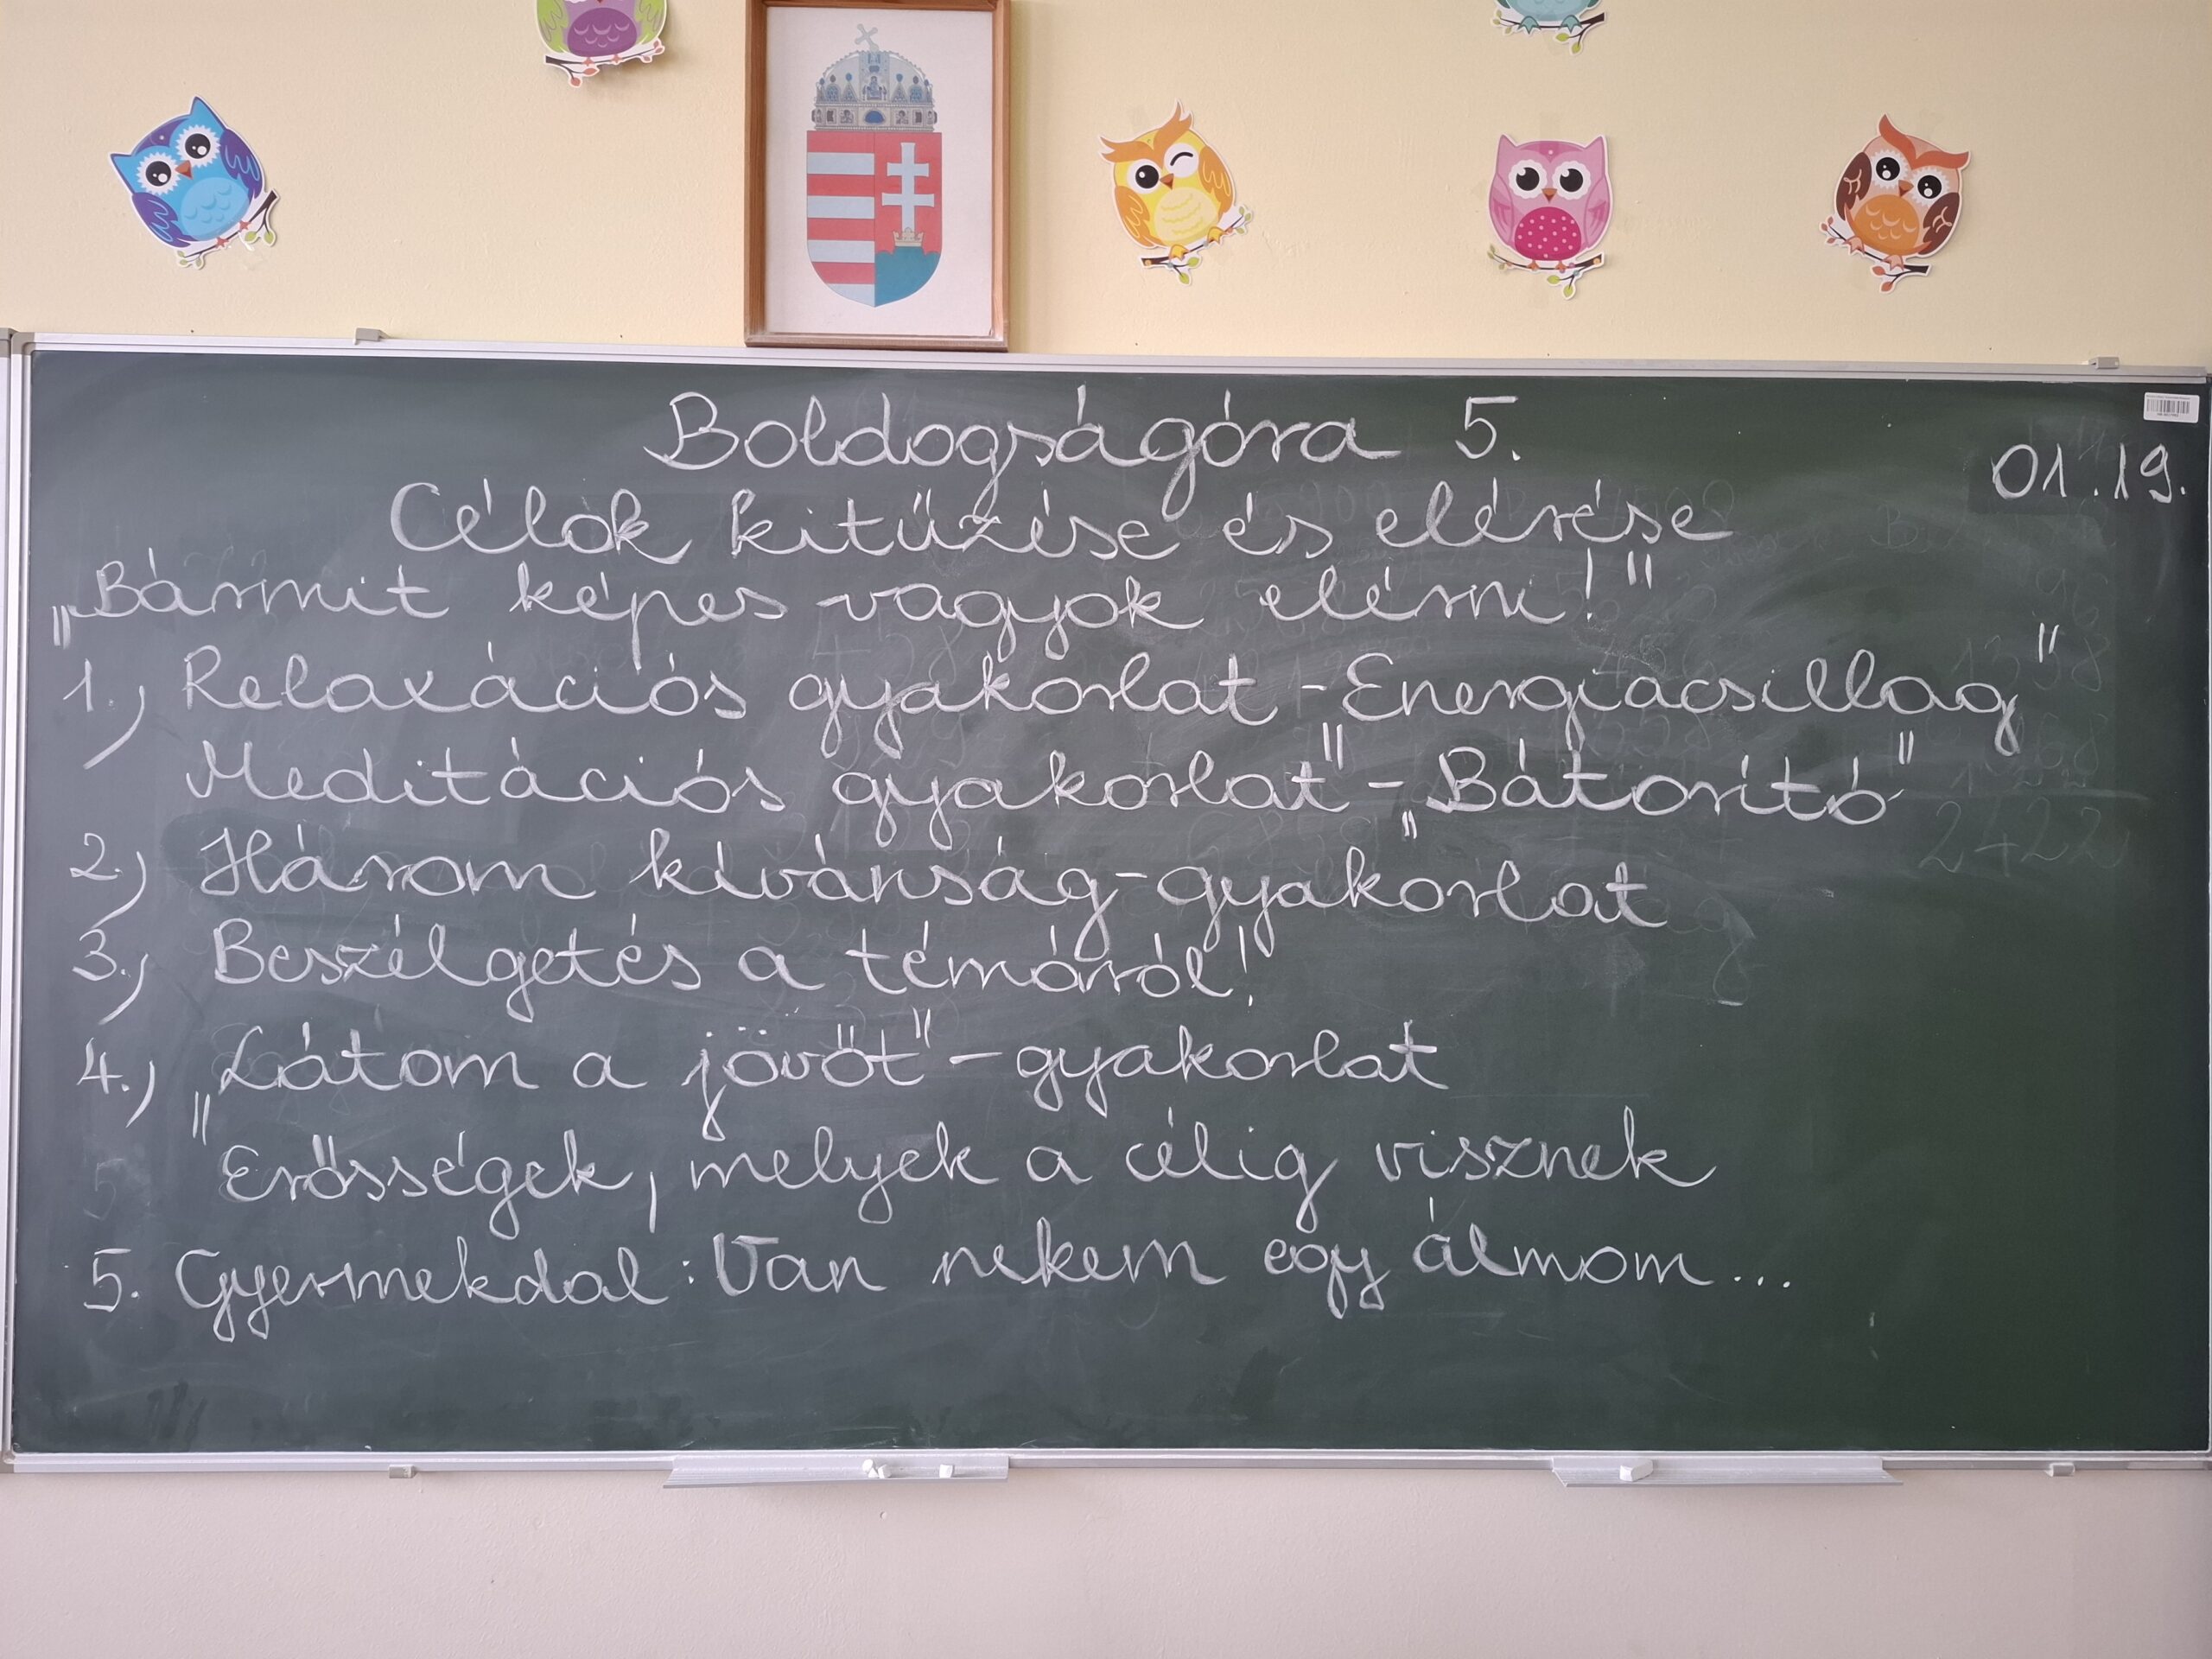 Boldogságóra 5.
01.19.
Célok kitűzése és elérése
„Bármit képes vagyok elérni!"
1.) Relaxációs gyakorlat - Energiacsillag"
Meditációs gyakorlat" - „Bátorító"
2.) Három kívánság - gyakorlat
3.) Beszélgetés a témáról!
4.) „Látom a jövőt" - gyakorlat
Erősségek, melyek a célig visznek
5. Gyermekdal: Van nekem egy álmom...